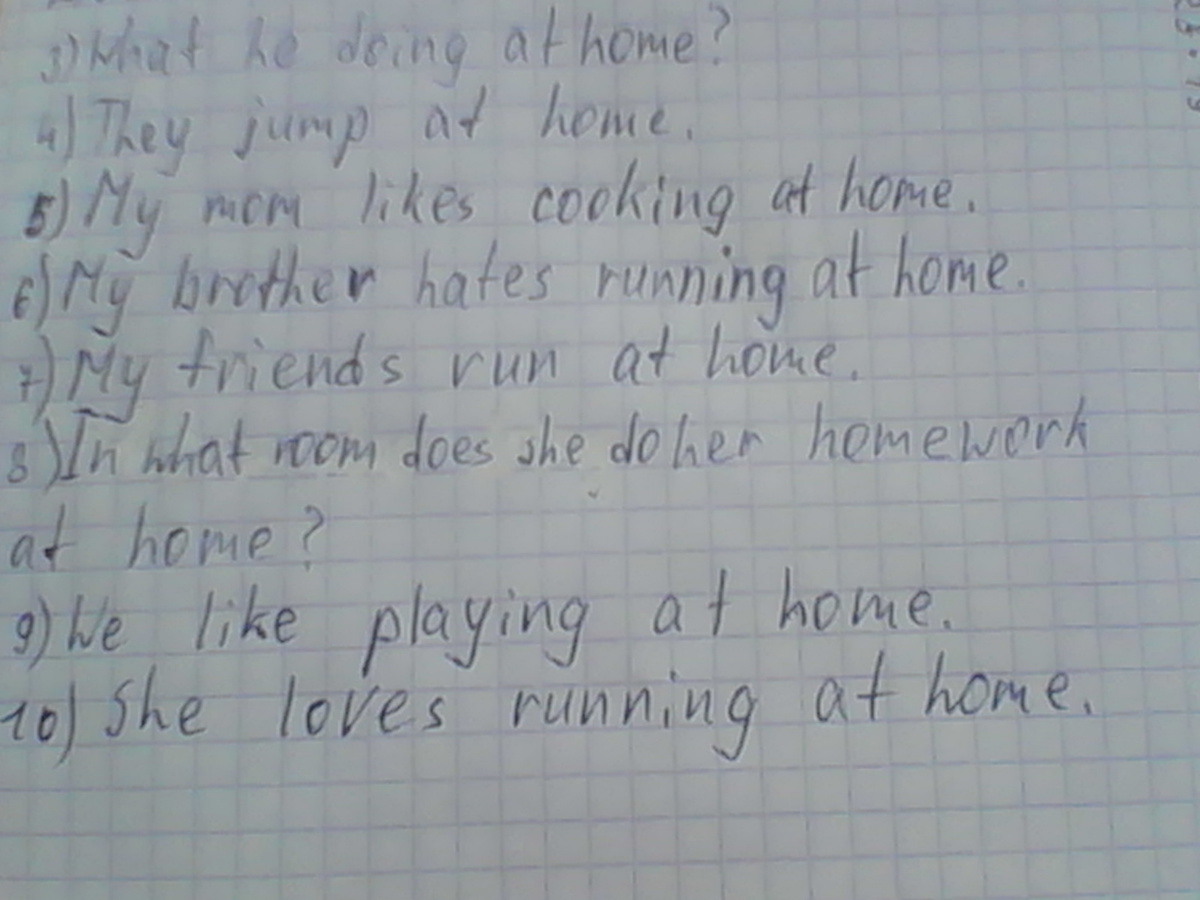 3) What he doing at home?
4) They jump at home.
5) My mom likes cooking at home.
6) My brother hates running at home.
7) My friends run at home.
8) In what room does she do her homework
at home?
9) We like playing at home.
10) She loves running at home.